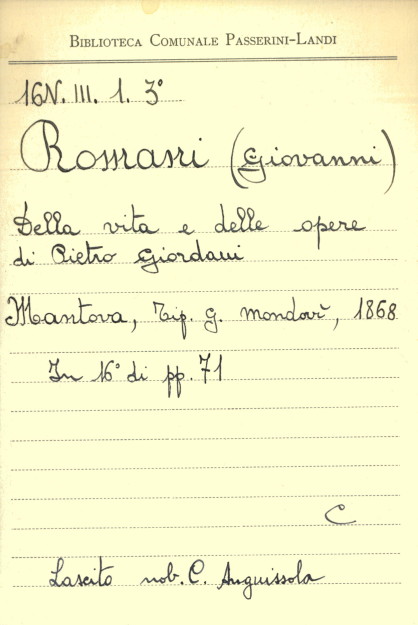 BIBLIOTECA COMUNALE PASSERINI-LANDI
16N. III. 1. 3°
Romani (Giovanni)
Della vita e delle opere
di Pietro Giordani
Mantova, Tip. G. Mondovì, 1868
In 16° di pp. 71
C
Lascito nob. C. Anguissola